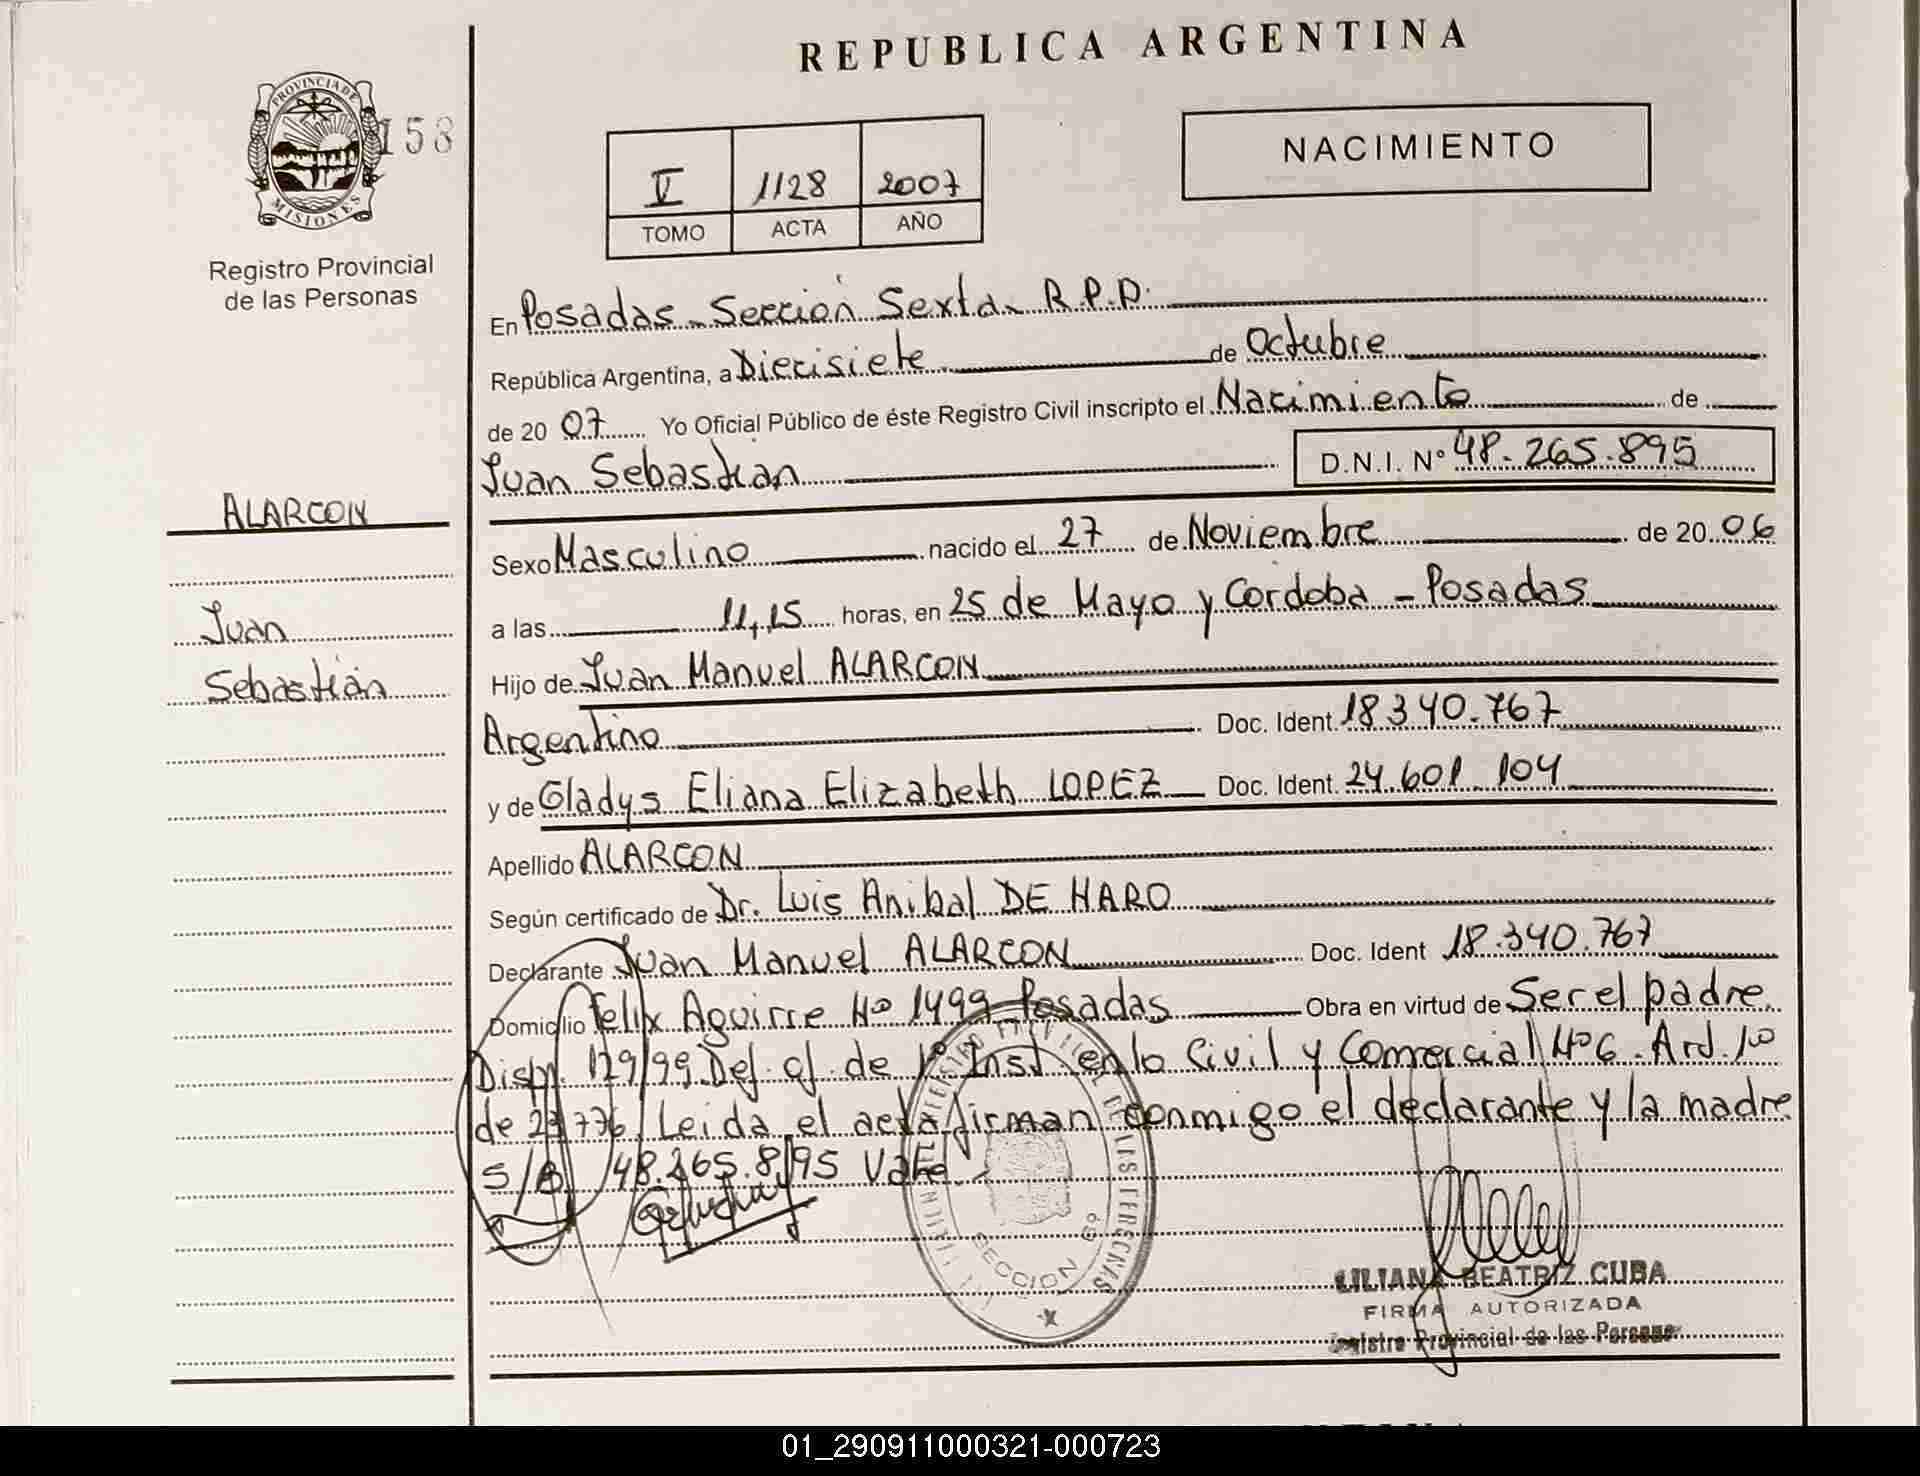 REPUBLICA ARGENTINA
PROVINCIA DE
MISIONES
158
Registro Provincial
de las Personas
V 1128 2007
TOMO ACTA AÑO
NACIMIENTO
ALARCON
Juan
Sebastián
En Posadas - Sección Sexta - R.P.P.
República Argentina, a Diecisiete de Octubre
de 20 07 Yo Oficial Público de éste Registro Civil inscripto el Nacimiento de
Juan Sebastian D.N.I. Nº 48.265.895
Sexo Masculino nacido el 27 de Noviembre de 20 06
a las 11,15 horas, en 25 de Mayo y Cordoba - Posadas
Hijo de Juan Manuel ALARCON
Argentino Doc. Ident. 18.340.767
y de Gladys Eliana Elizabeth LOPEZ Doc. Ident. 24.601.104
Apellido ALARCON
Según certificado de Dr. Luis Anibal DE HARO
Declarante Juan Manuel ALARCON Doc. Ident 18.340.767
Domicilio Felix Aguirre Nº 1499 Posadas Obra en virtud de Ser el padre.
Disp. 129/99. Def. of. de 1º Inst. en lo Civil y Comercial Nº 6. Ard. 1º
de 23776 Leida el acta firman conmigo el declarante y la madre
S/B 48.265.895 Vale.
SECCION 6º
LILIANA BEATRIZ CUBA
FIRMA AUTORIZADA
Registro Provincial de las Personas
01_290911000321-000723